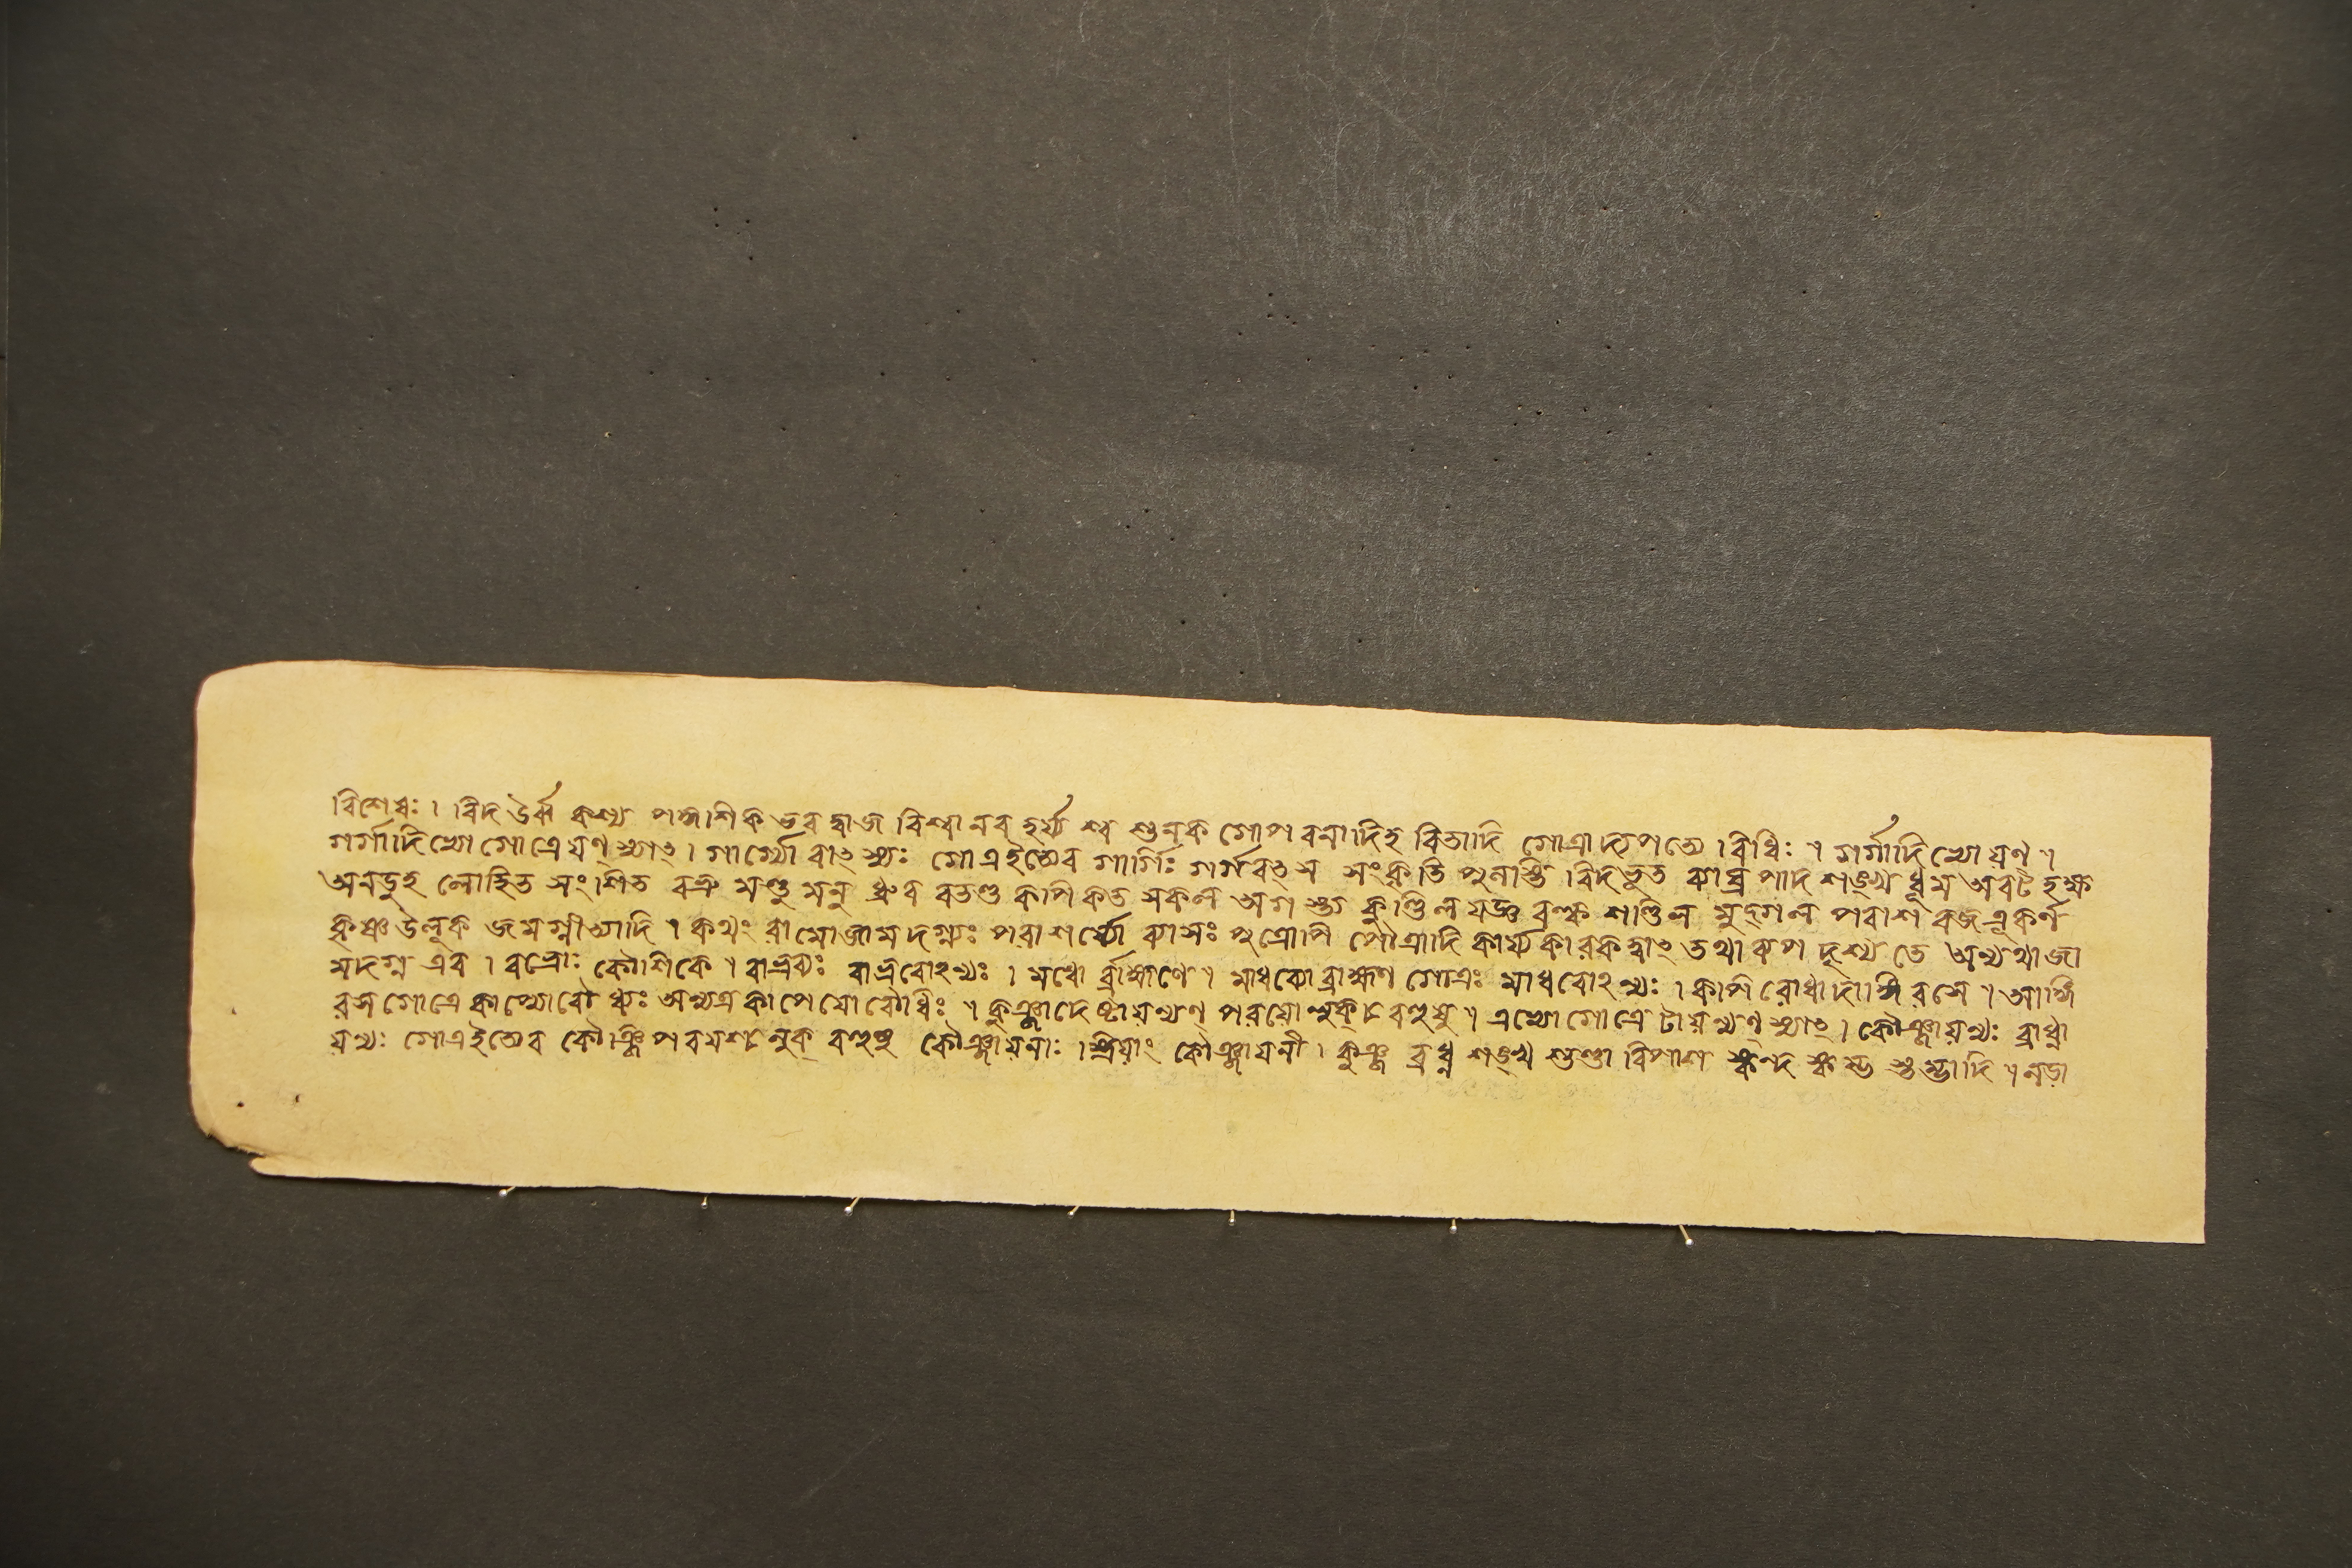 বিশেষঃ । বিদ উর্ব্ব কশ্যপ কুশিক ভরদ্বাজ বিশ্বানর হর্য্যশ্ব শুনক গোপবনাদিহ বিতাদি গোত্রাদ্যপত্যে বিধিঃ ॥ গর্গাদিভ্যো যণ্ ।
গর্গাদিভ্যো গোত্রে যণ্ স্যাৎ । গার্গ্যো বাৎস্যঃ গোত্রইত্যেব গার্গিঃ গর্গ বৎস সংকৃতি পুলস্তি বিদভৃত ব্যাঘ্রপাদ শঙ্খ ধূম অবট
অনডুহ লোহিত সংশিত বভ্রু মণ্ডু মনু ধ্রুব বতণ্ড কপি কত সকল অগস্ত্য কুণ্ডিল যজ্ঞ বল্ক শণ্ডিল মুদ্গল পরাশর জতূকর্ণ
কৃষ্ণ উলূক জমদগ্নীত্যাদি । কথং রামোজামদগ্ন্যঃ পরাশর্য্যো ব্যাসঃ পুত্রোপি পৌত্রাদি কার্য্যকারকত্বাৎ তথা ব্যপদৃশ্যতে অন্যথা জা
মদগ্ন এব । বভ্রোঃ কৌশিকে । বাভ্রব্যঃ বাভ্রবোঽন্যঃ । মধো র্ব্রাহ্মণে । মাধব্যো ব্রাহ্মণ গোত্রঃ মাধবোঽন্যঃ । কপি বোধাদাঙ্গিরসে ॥ আঙ্গি
রস গোত্রে কাপ্যো বৌধ্যঃ অন্যত্র কাপেয়ো বৌধিঃ ॥ কুঞ্জাদে ষ্টায়ন্যণ্ পরয়ো লুক্ চ বহুষু ॥ এভ্যো গোত্রে টায়ন্যণ্ স্যাৎ । কৌঞ্জায়ন্যঃ ব্রাধ্না
য়ন্যঃ গোত্রইত্যেব কৌঞ্জি পরয়শ্চ লুক্ বহুষু কৌঞ্জায়নাঃ । স্ত্রিয়াং কৌঞ্জায়নী । কুঞ্জ ব্রধ্ন শঙ্খ শুণ্ডা বিপাশ স্কন্দ স্কম্ভ শুম্ভাদি ॥ নড়া